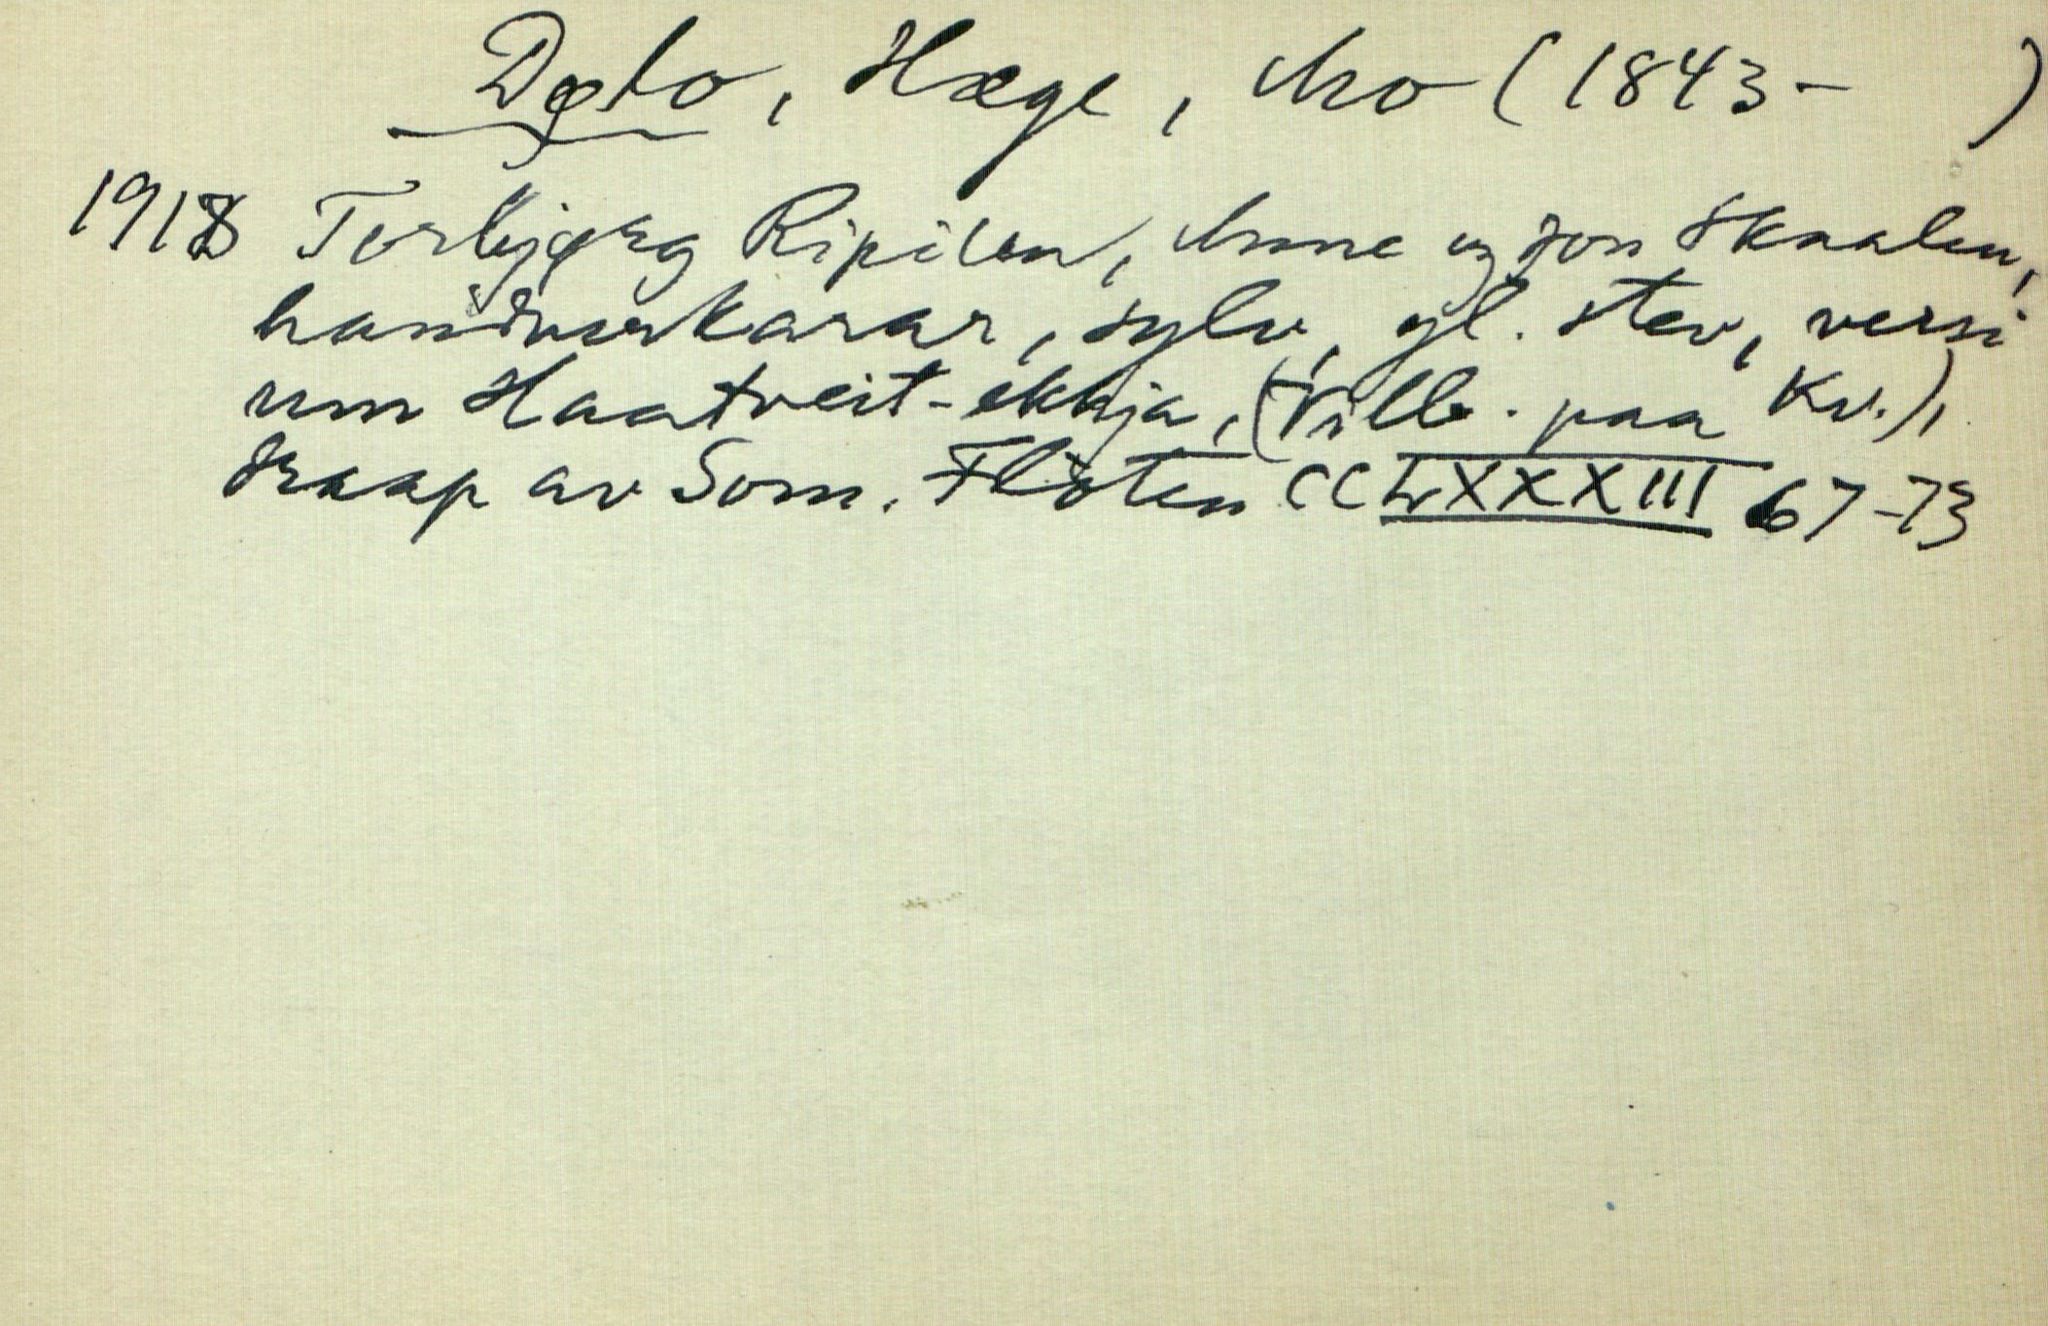 Dølo, Hæge, Mo (1843- )
1918 Torbjørg Ripilen, Anne og Jon Skaalen,
handverkarar, sylv, gl. stev, versi
um Haatveit-ekkja, (Vill. paa Kv.),
draap av Som. Flöten CCLXXXIII 67-73